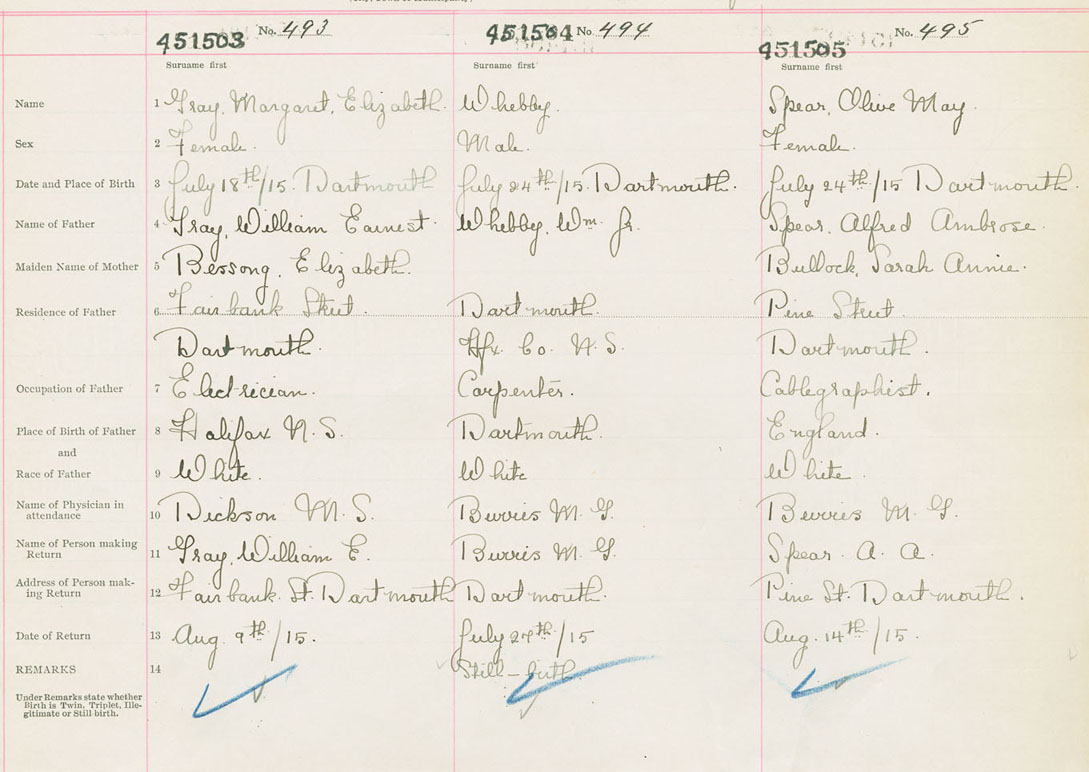 No. 493 451504 No 494 No. 495
451503 451505
Surname first Surname first Surname first
Name 1 Gray, Margaret, Elizabeth. Whebby. Spear, Olive May.
Sex 2 Female. Male. Female.
Date and Place of Birth 3 July 18th/15. Dartmouth July 24th/15. Dartmouth. July 24th/15 Dartmouth.
Name of Father 4 Gray, William Earnest. Whebby, Wm. Jr. Spear, Alfred Ambrose.
Maiden Name of Mother 5 Bessong, Elizabeth. Bullock, Sarah Annie.
Residence of Father 6 Fairbank Street. Dartmouth. Pine Street.
Dartmouth. Hfx. Co. N. S. Dartmouth.
Occupation of Father 7 Electrician. Carpenter. Cablegraphist.
Place of Birth of Father 8 Halifax N. S. Dartmouth. England.
and
Race of Father 9 White. White White.
Name of Physician in attendance 10 Dickson M. S. Burris M. G. Burris M. G.
Name of Person making Return 11 Gray, William E. Burris M. G. Spear. A. A.
Address of Person making Return 12 Fairbank St. Dartmouth Dartmouth. Pine St. Dartmouth.
Date of Return 13 Aug. 9th/15. July 27th/15 Aug. 14th/15.
REMARKS 14 Still-birth.
Under Remarks state whether
Birth is Twin, Triplet, Ille-
gitimate or Still-birth.